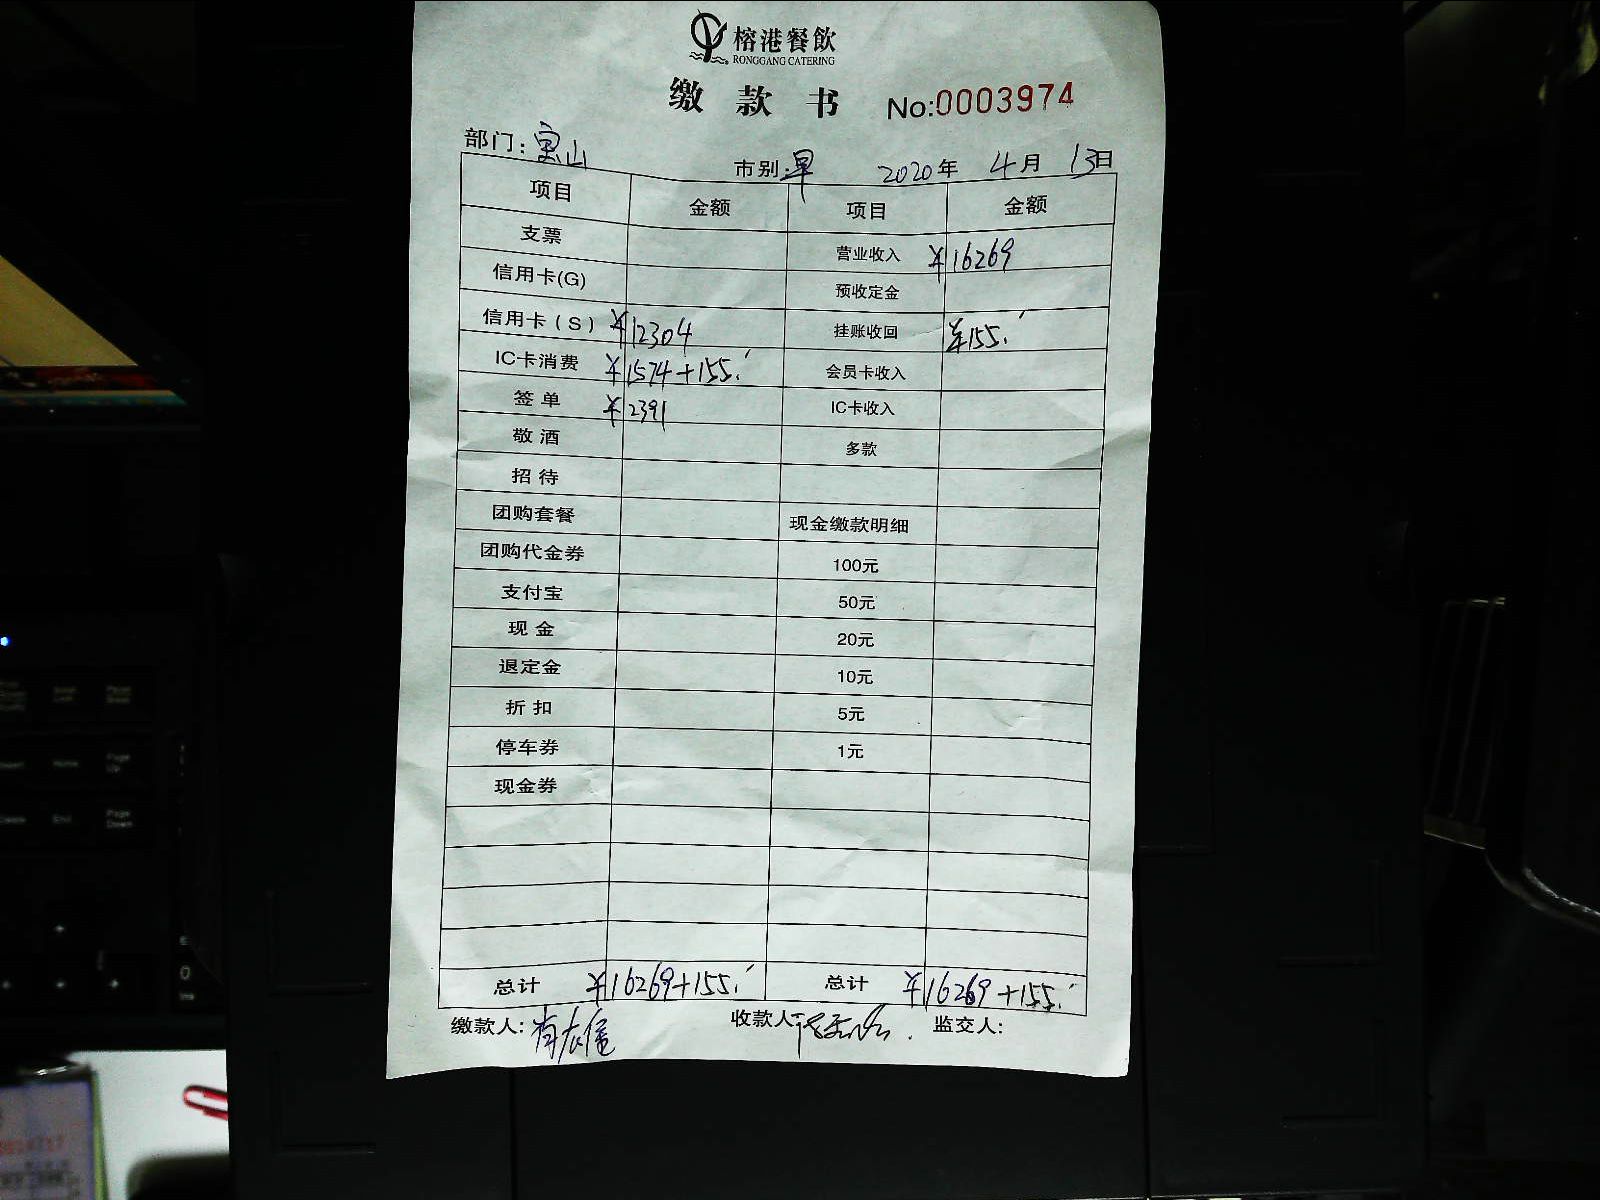 榕港餐飲
RONGGANG CATERING
缴款书 No:0003974
部门: 宝山 市别: 早 2020年 4月 13日
项目 金额 项目 金额
支票 营业收入 ¥16269
信用卡(G) 预收定金
信用卡(S) ¥12304 挂账收回 ¥155.
IC卡消费 ¥1574+155. 会员卡收入
签单 ¥2391 IC卡收入
敬酒 多款
招待
团购套餐 现金缴款明细
团购代金券 100元
支付宝 50元
现金 20元
退定金 10元
折扣 5元
停车券 1元
现金券
总计 ¥16269+155. 总计 ¥16269+155.
缴款人: 收款人: 监交人: